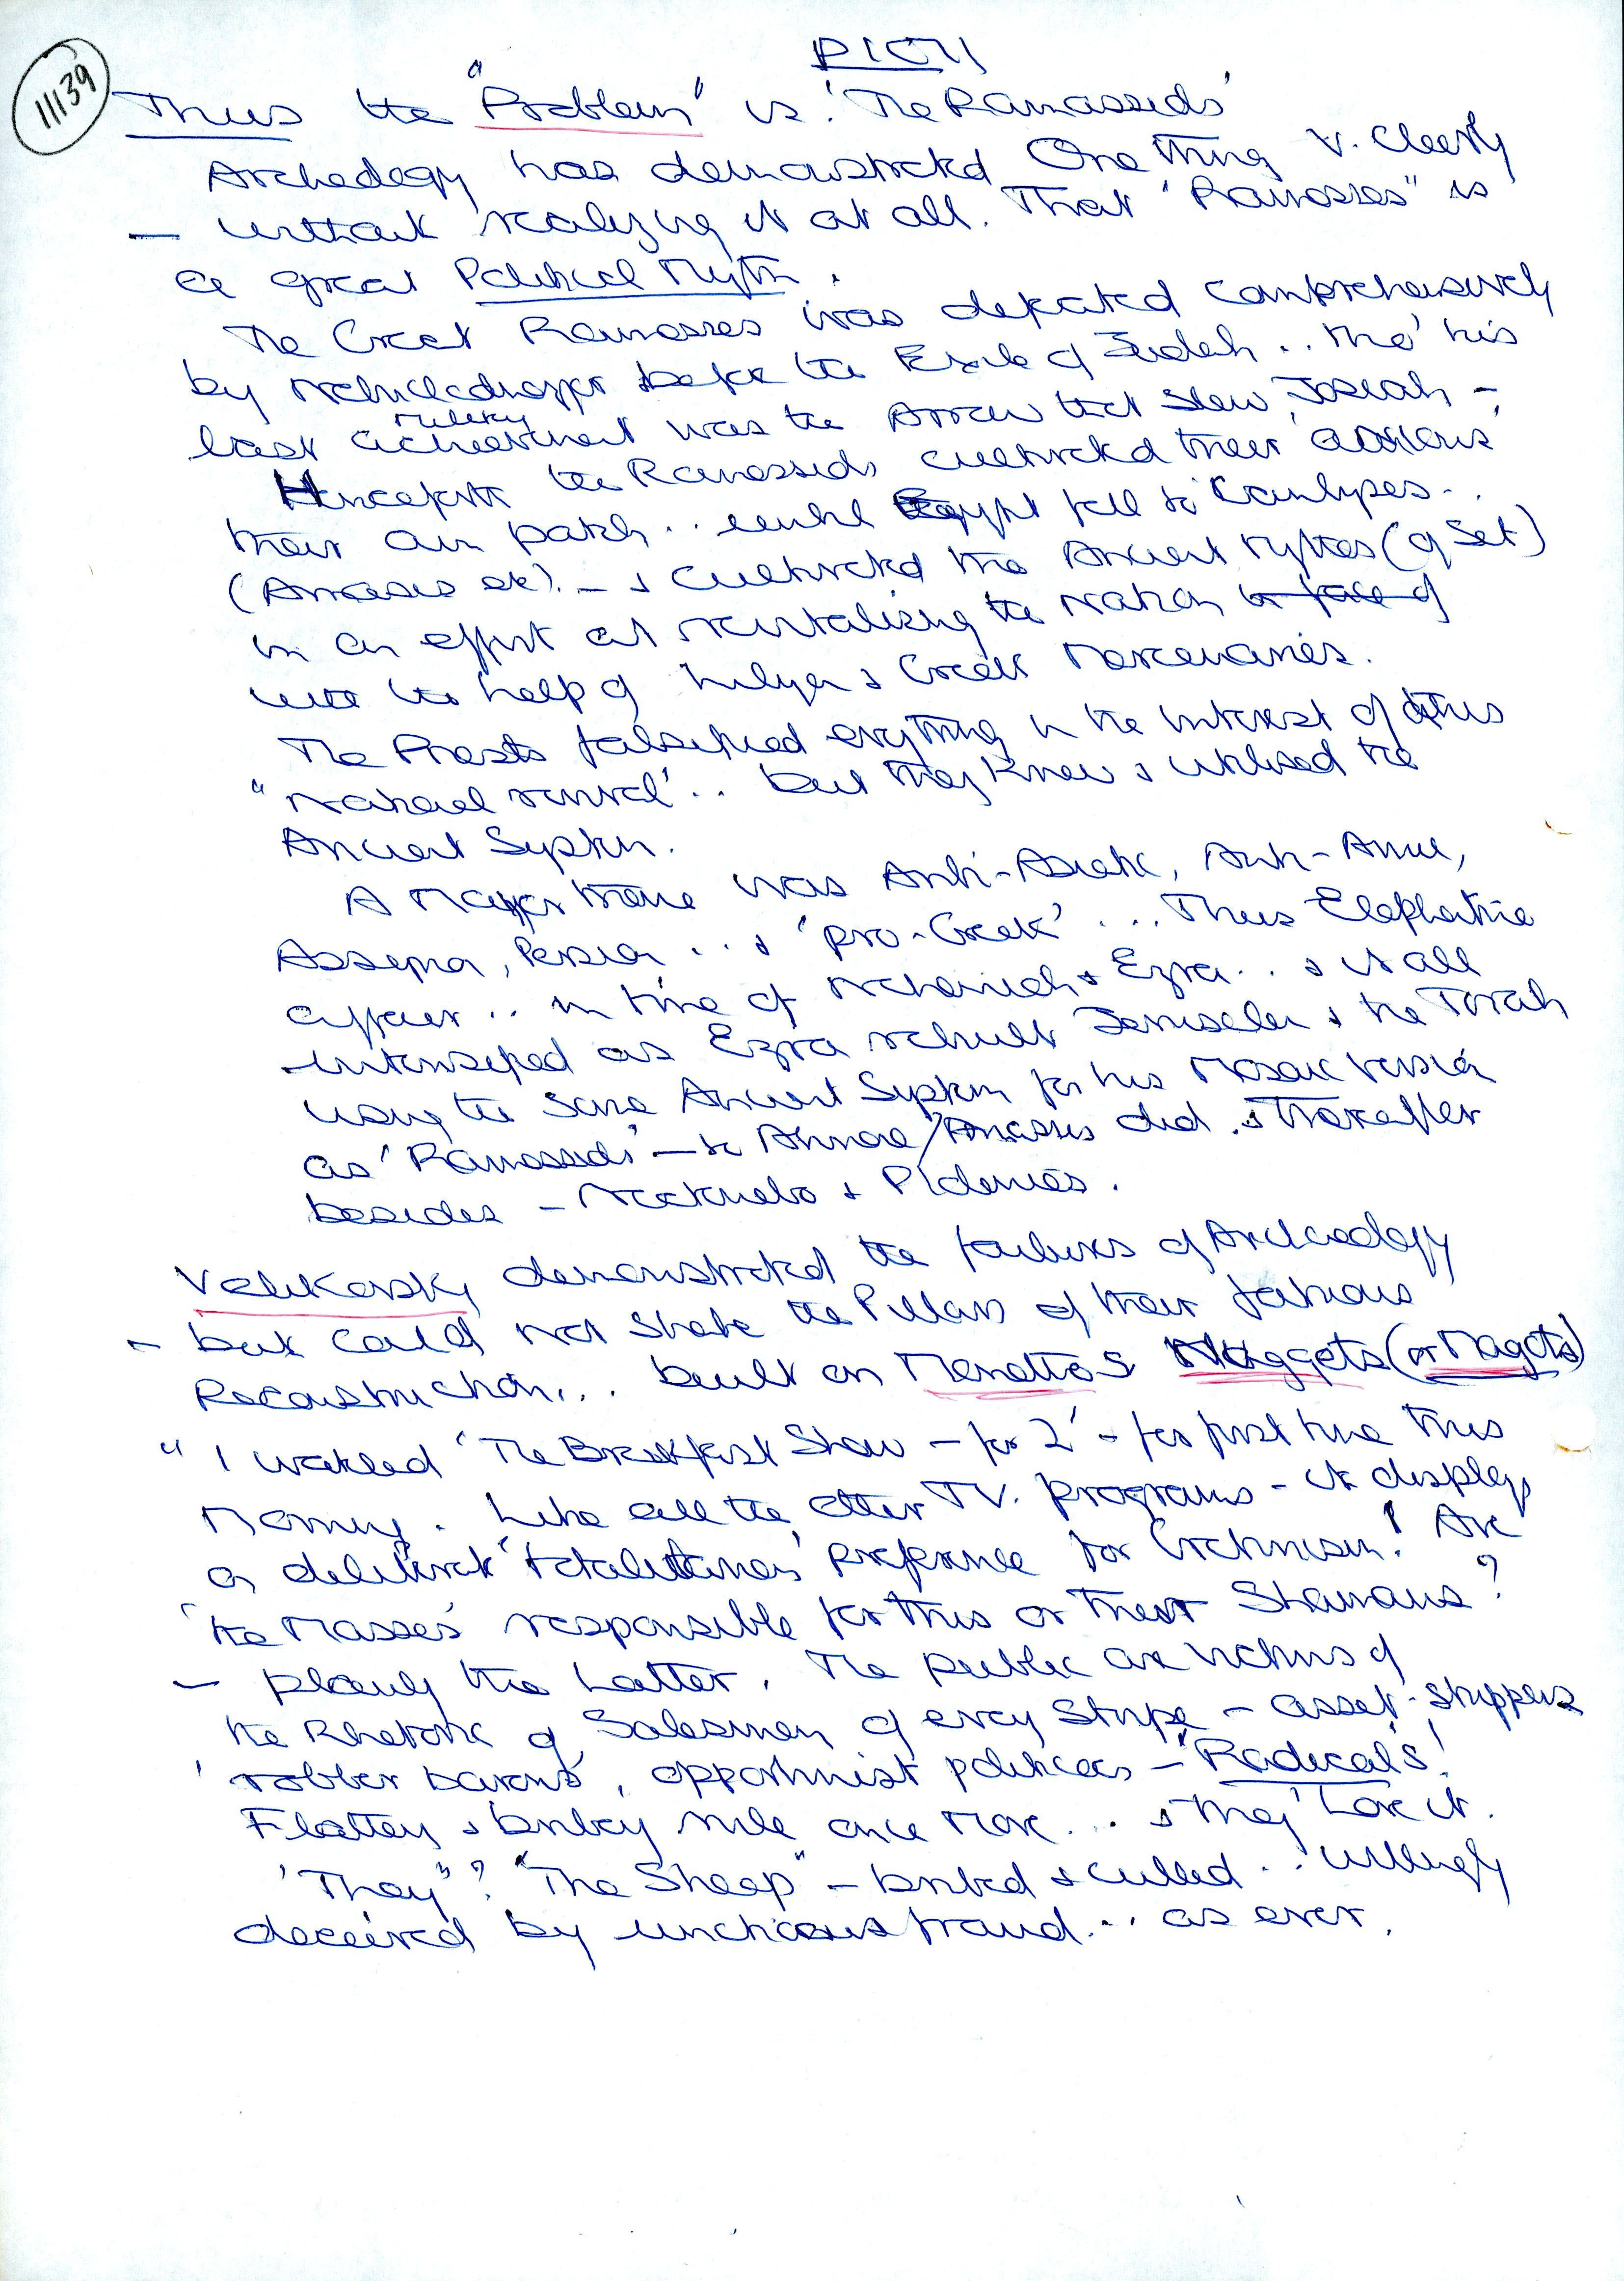 11139
Thus the "Problem" is 'The Ramassids'
Archeology has demonstrated One thing v. clearly
— without realizing it at all. That "Ramosses" is
a great Political Myth.
The Great Ramosses was defeated comprehensively
by Nebuchadnezzar before the Exile of Judah .. tho' his
last military achievement was the Arrow that slew Josiah –
Henceforth the Ramossids cultivated their
their own patch .. until Egypt fell to Cambyses ..
(Amasis etc). – & cultivated the Ancient Myths (of Set)
in an effort at revitalizing the Nation in face of
with the help of Libyan & Greek Mercenaries.
The Priests falsified everything in the interest of this
"National revival' .. but they knew & utilised the
Ancient System.
A Major theme was Anti-Asiatic, Anti-Amu,
Assyria, Persia ... & 'pro-Greek' ... Thus Elephantine
affair .. in time of Nehemiah & Ezra .. & it all
intensified as Ezra rebuilt Jerusalem & the Torah
using the same Ancient System for his Mosaic Version
as 'Ramossids' — to Ahmose/Amasis did. & Thereafter
besides – Nectanebo & Ptolemies.
Velikovsky demonstrated the failures of Archeology
– but could not shake the Pillars of their fatuous
Reconstruction... built on Manethos Nuggets (or Magots)
" I watched 'The Breakfast Show – for 2' – for first time this
Morning. Like all the other TV. programs – it displays
a deliberate 'totalitarian' preference for Cretinism! Are
'the Masses' responsible for this or their Shamans?
– plainly the Latter. The public are victims of
the Rhetoric of Salesmen of every Stripe – asset-strippers
'robber barons', opportunist politicos – "Radicals'!
Flattery & bribery rule once more ... & 'They' Love it.
'They"? "The Sheep" – bribed & culled ... willingly
deceived by unctious fraud ... as ever.